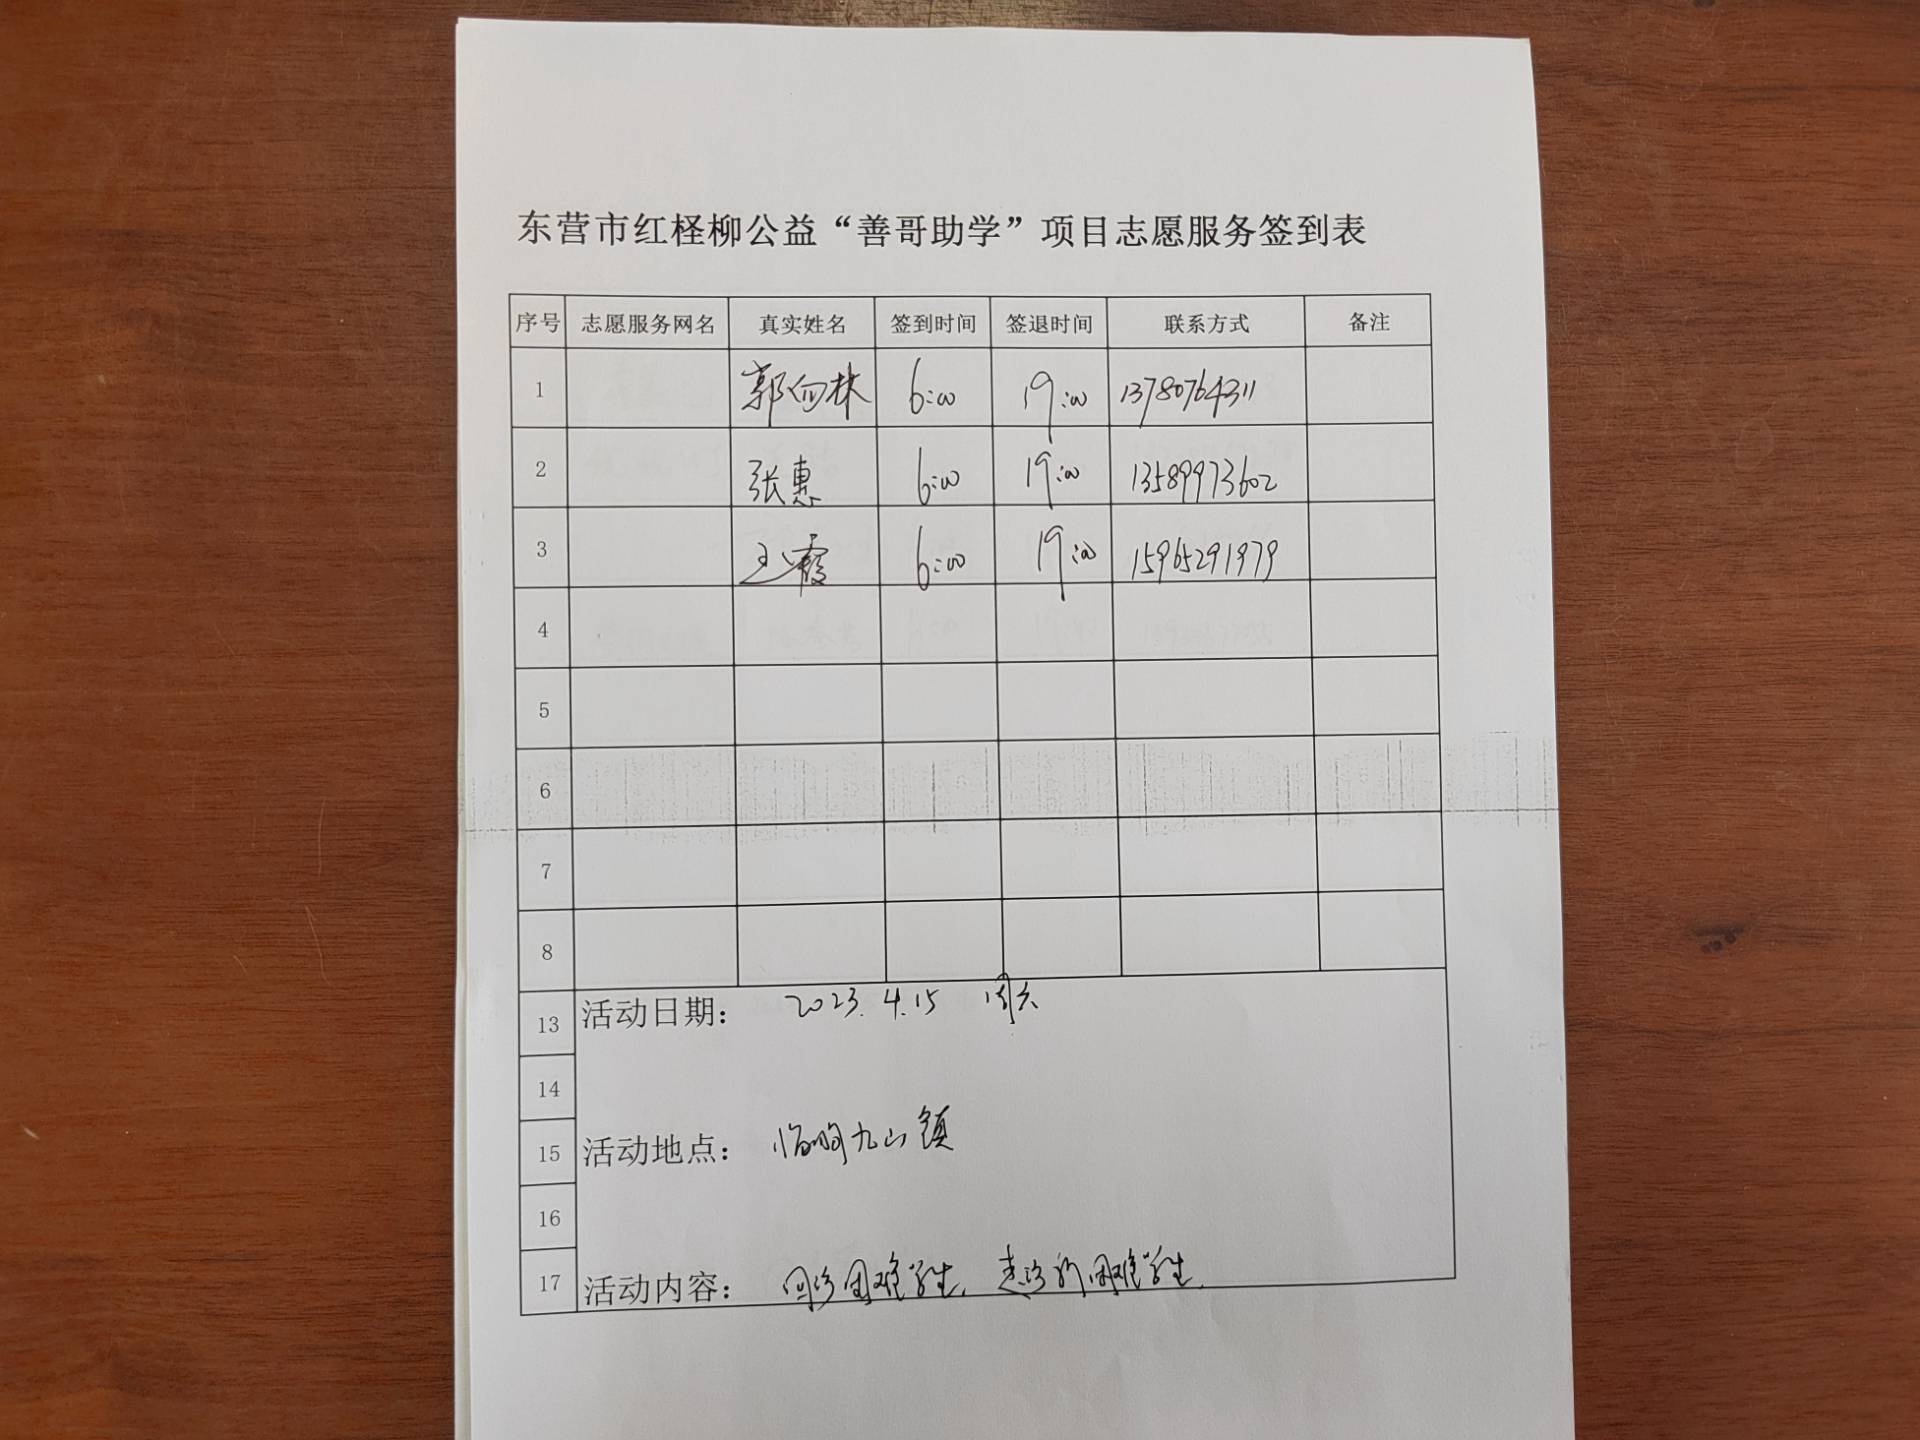 东营市红柽柳公益“善哥助学”项目志愿服务签到表
序号 志愿服务网名 真实姓名 签到时间 签退时间 联系方式 备注
1 郭向林 6:00 19:00 13780764311
2 张惠 6:00 19:00 13589973602
3 王霞 6:00 19:00 15965291979
4
5
6
7
8
13 活动日期: 2023.4.15 周六
14
15 活动地点: 临朐九山镇
16
17 活动内容: 回访困难学生, 走访新困难学生.